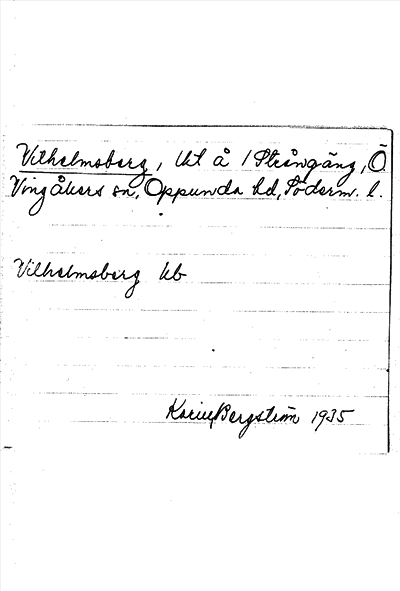 Vilhelmsberg, Ut å 1 Strångäng, Ö.
Vingåkers sn, Oppunda hd, Söderm. l.
Vilhelmsberg Ub
Karin Bergström 1935